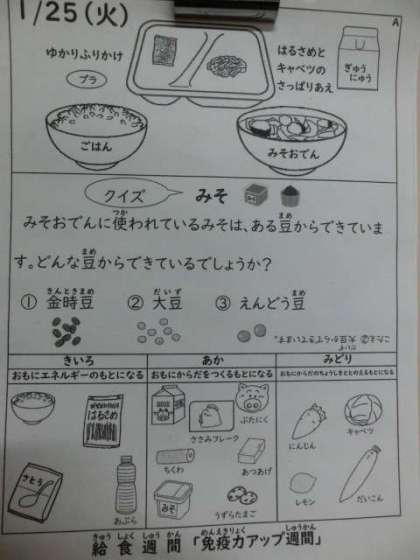 1/25(火)
A
ゆかりふりかけ
プラ
はるさめと
キャベツの
さっぱりあえ
ぎゅう
にゅう
ごはん
みそおでん
クイズ
みそ
みそおでんに使われているみそは、ある豆からできていま
す。どんな豆からできているでしょうか?
① 金時豆 ② 大豆 ③ えんどう豆
こたえ②大豆からできています。
きいろ
おもにエネルギーのもとになる
はるさめ
さとう
あぶら
あか
おもにからだをつくるもとになる
ぶたにく
ささみフレーク
ちくわ
あつあげ
みそ
うずらたまご
みどり
おもにからだのちょうしをととのえるもとになる
にんじん
キャベツ
レモン
だいこん
給食週間「免疫力アップ週間」